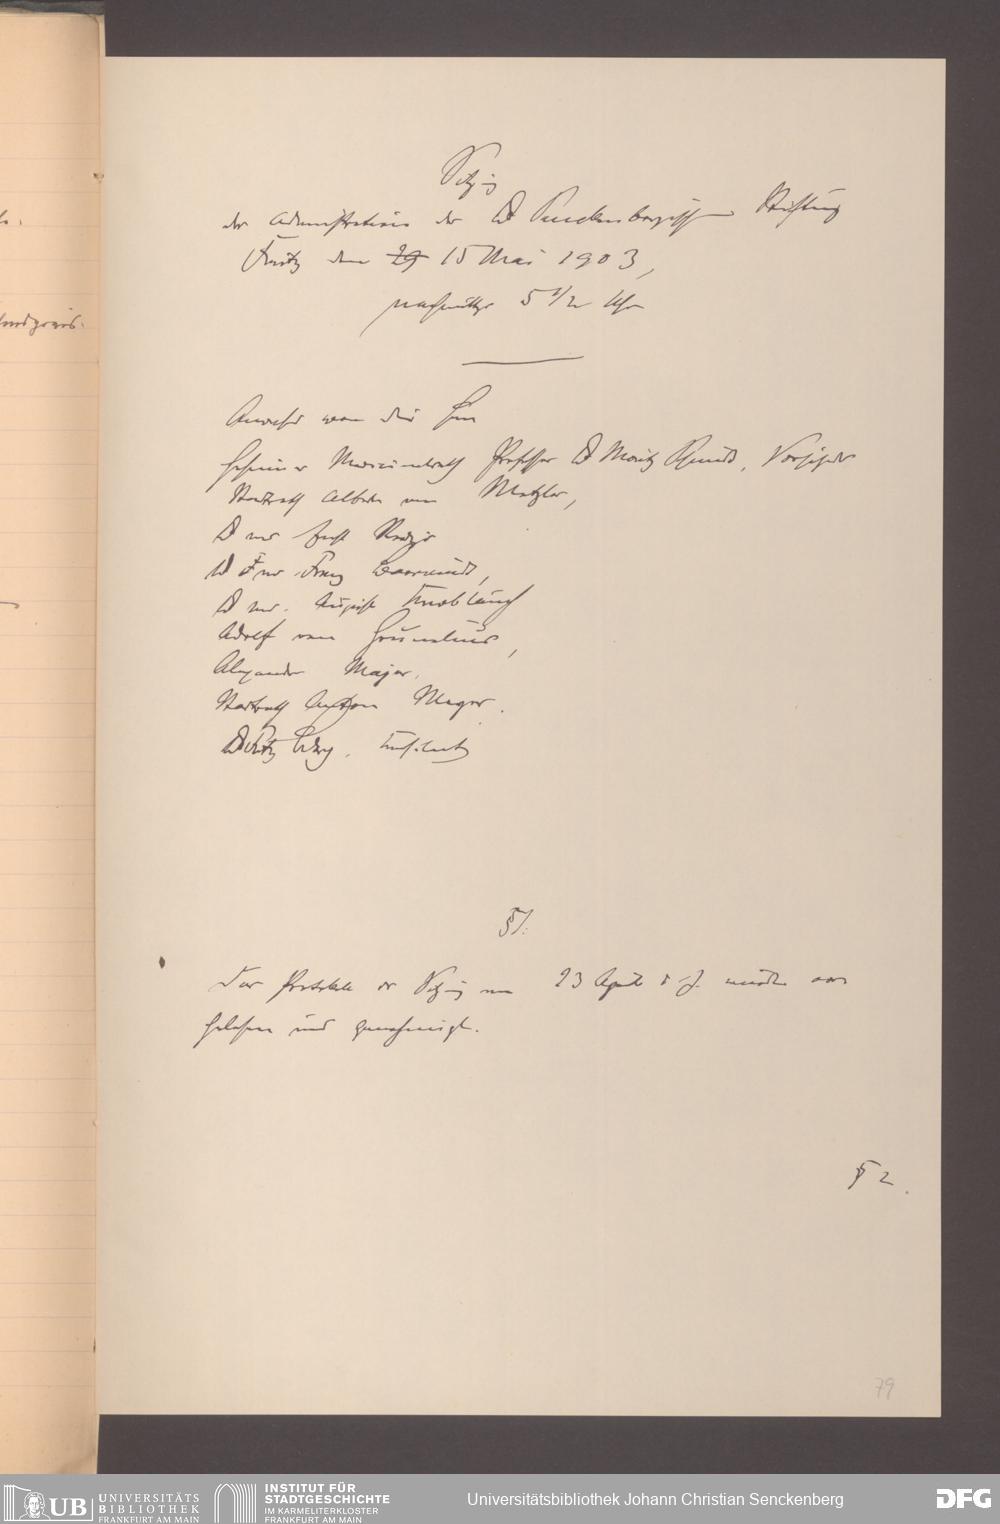 Sitzung
der Administration der Dr Senckenbergischen Stiftung
Freitag den 29 15 Mai 1903,
nachmittgs 5 1/2 Uhr
Anwesend waren die Herren
Geheimer Medicinalrath Professor Dr Moritz Schmidt, Vorsitzender
Stadtrath Albert von Metzler,
Dr med Ernst
Dr med Franz
Dr med. August Knoblauch
Adolf von Grunelius,
Alexander Majer.
Stadtrath Anton Meyer.
Dr Fritz Berg, Konsulent
§1.
Das Protokoll der Sitzung vom 23 April d. J. wurde vor
gelesen und genehmigt.
§ 2.
79
UB UNIVERSITÄTS
BIBLIOTHEK
FRANKFURT AM MAIN
INSTITUT FÜR
STADTGESCHICHTE
IM KARMELITERKLOSTER
FRANKFURT AM MAIN
Universitätsbibliothek Johann Christian Senckenberg
DFG